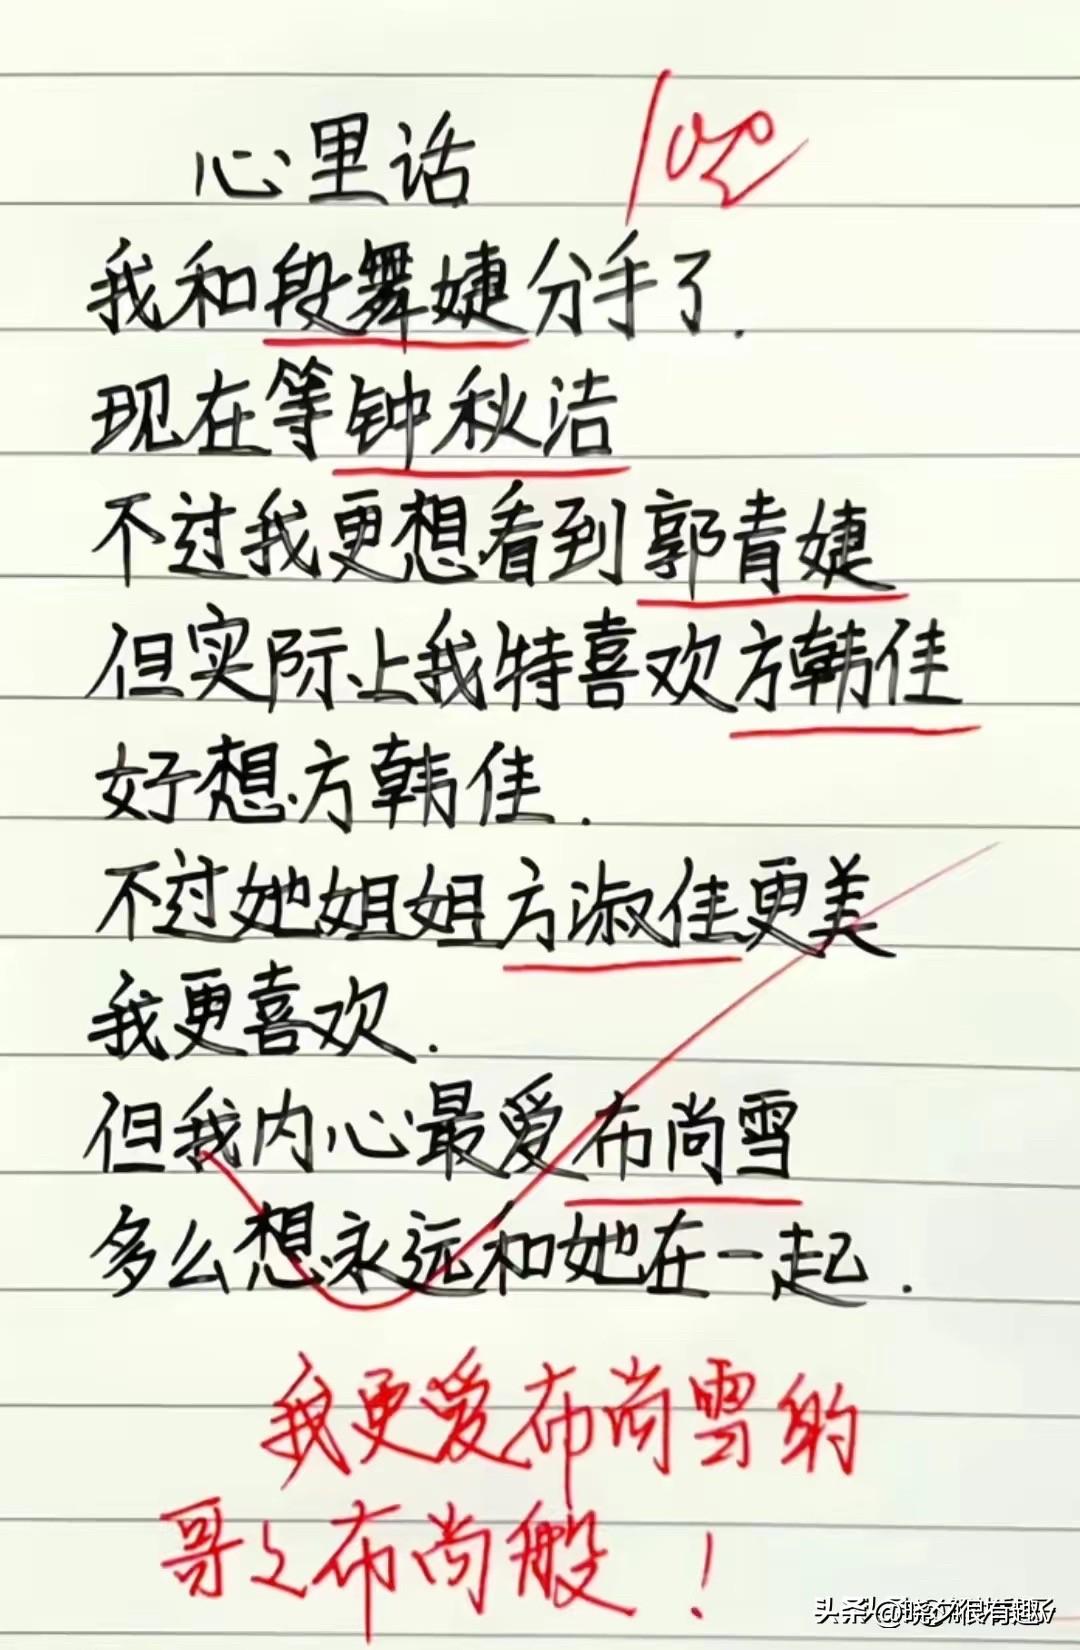 心里话
100
我和段舞婕分手了.
现在等钟秋洁
不过我更想看到郭青婕
但实际上我特喜欢方韩佳
好想方韩佳.
不过她姐姐方淑佳更美
我更喜欢.
但我内心最爱布尚雪
多么想永远和她在一起.
我更爱布尚雪的
哥哥布尚般!
头条@晓文很有趣